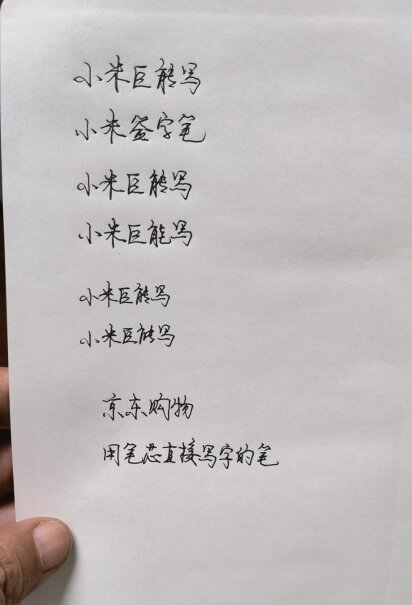 小米巨能写
小米签字笔
小米巨能写
小米巨能写
小米巨能写
小米巨能写
京东购物
用笔芯直接写字的笔